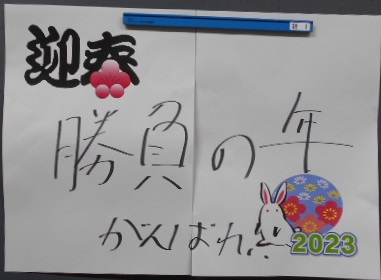 迎春
勝負の年
がんばれ!
2023